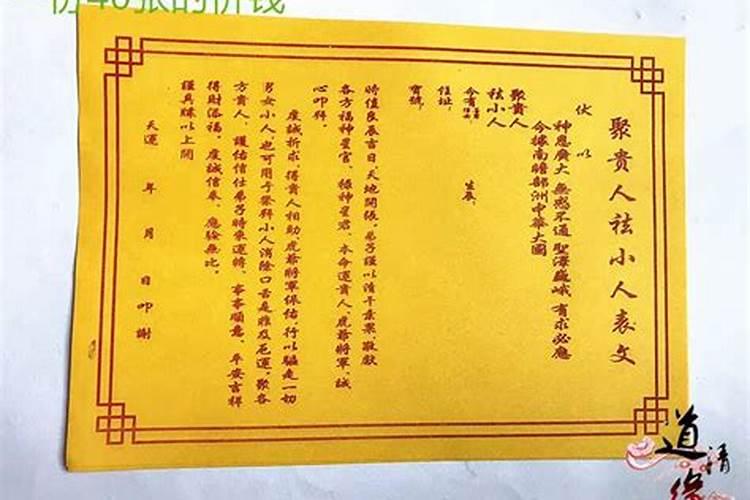 份40张的价钱
聚貴人祛小人表文
伏以
神恩廣大 無感不通 聖澤巍峨 有求必應
今據南瞻部洲中華大國
聚貴人
祛小人
今有
生辰
住址
寶號
時值良辰吉日，天地開張，弟子謹以清干素果敬獻
各方福神星官、祿神星君、本命運貴人、虎爺將軍、誠
心叩拜。
虔誠祈求，得貴人相助虎爺將軍保佑 行以驅走一切
男女小人，也可用于祭拜小人消除口舌是非及厄運，聚各
方貴人，護佑信仕弟子時來運轉、事事順意、平安吉祥
得財添福。虔誠信奉，應驗無比。
謹具牒以上聞
天運 年 月 日叩謝
道
清
缘